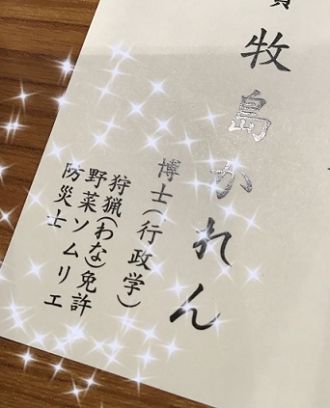 員
牧島かれん
博士(行政学)
狩猟(わな)免許
野菜ソムリエ
防災士